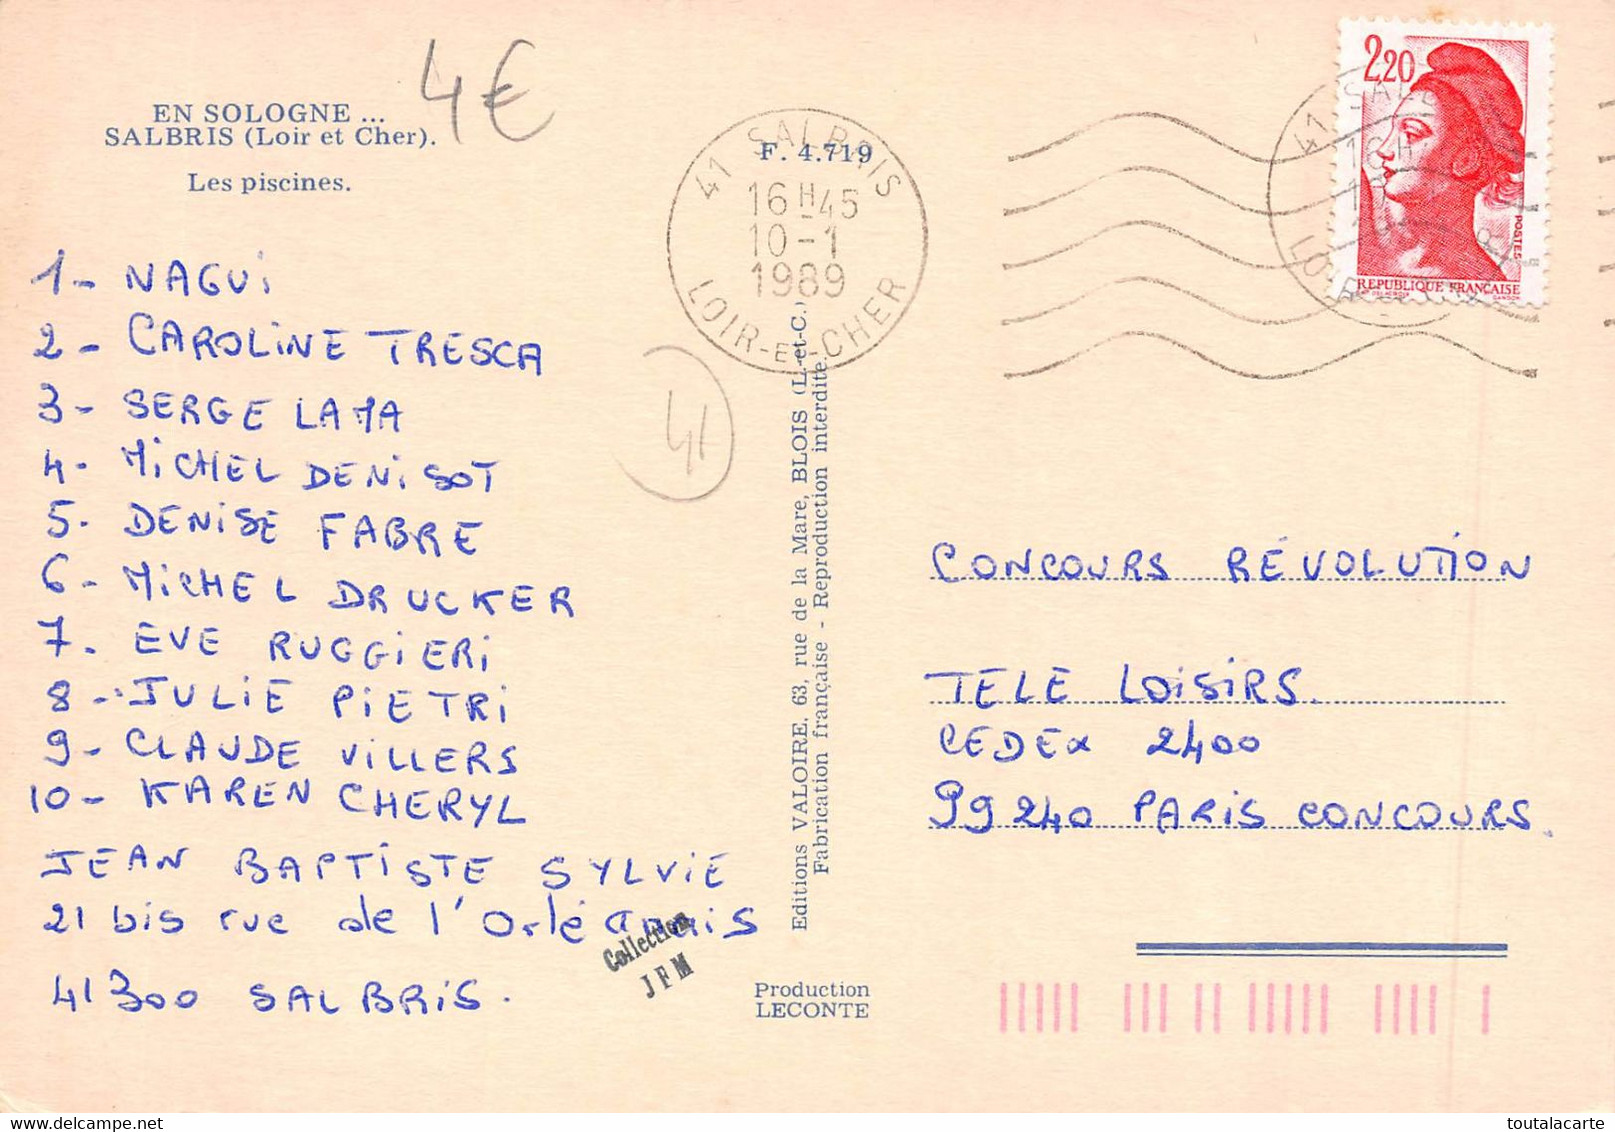 4€
EN SOLOGNE ...
SALBRIS (Loir et Cher).
Les piscines.
F. 4.719
41 SALBRIS
16 H 45
10-1
1989
LOIR-ET-CHER
2,20
POSTES
REPUBLIQUE FRANÇAISE
1- NAGUi
2- CAROLiNE TRESCA
3- SERGE LAMA
4- MiCHEL DENiSOT
5- DENiSE FABRE
6- MiCHEL DRUCKER
7. EVE RUGGiERi
8- JULiE PiETRi
9- CLAUDE ViLLERS
10- KAREN CHERYL
JEAN BAPTiSTE SYLViE
21 bis rue de l'Orléanais
41300 SALBRiS.
41
Collection
JFM
Editions VALOIRE, 63, rue de la Mare, BLOIS (L.-et-C.)
Fabrication française - Reproduction interdite.
Production
LECONTE
CONCOURS RÉVOLUTiON
TELE LOiSiRS.
CEDEX 2400
99240 PARiS CONCOURS.
toutalacarte